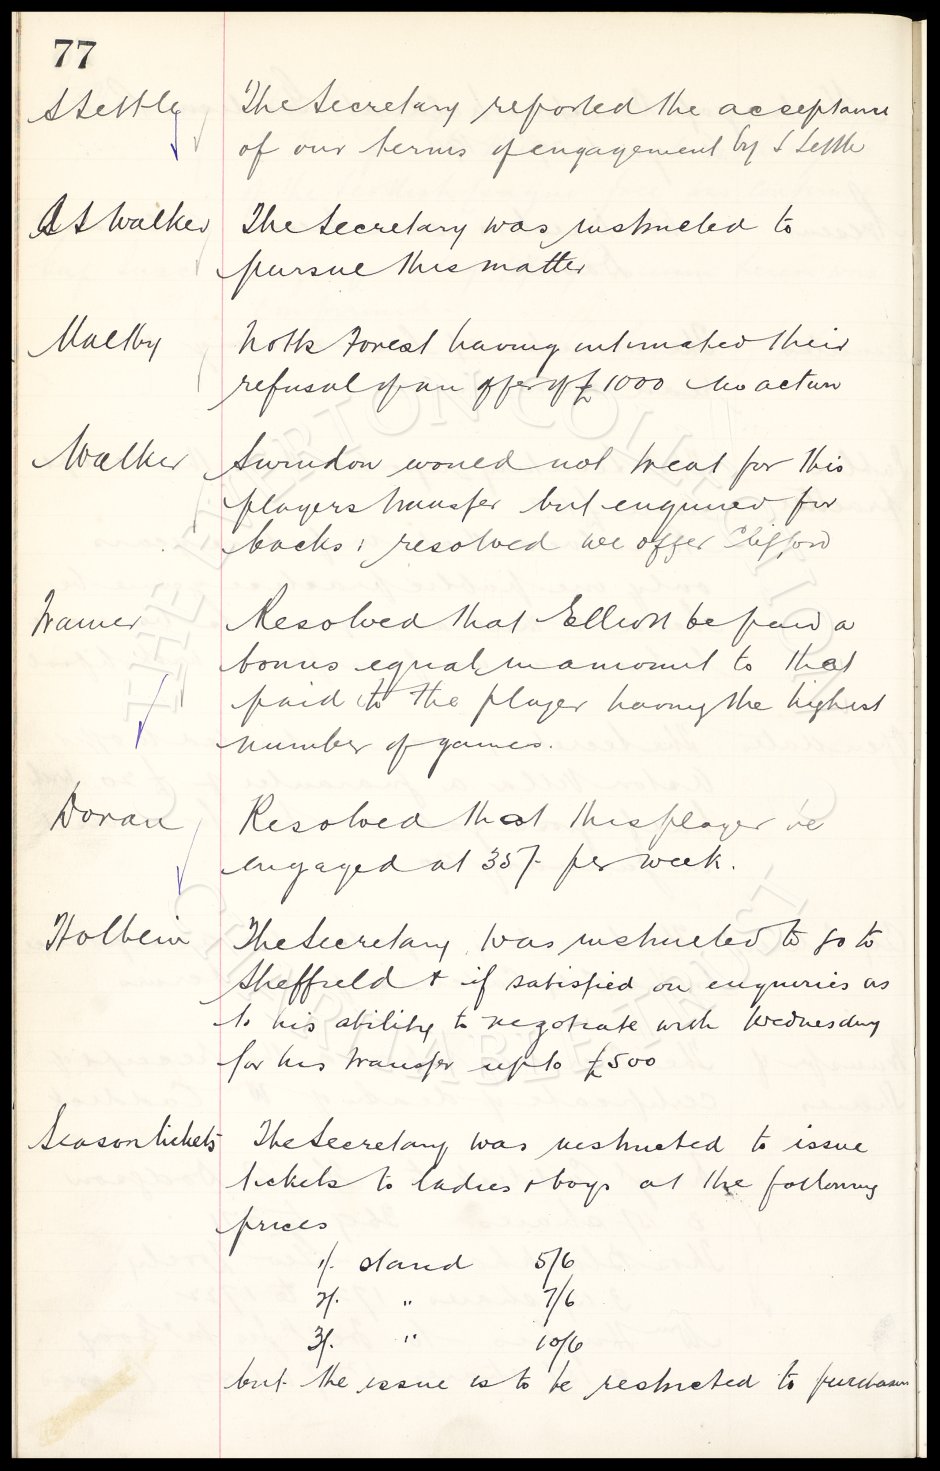 77
S Settle The Secretary reported the acceptance
of our terms of engagement by S Settle
A S Walker The Secretary was instructed to
pursue this matter
Maltby Notts Forest having intimated their
refusal of an offer of £1000 no action
Walker Swindon would not treat for this
players transfer but enquired for
backs; resolved we offer Clifford
Trainer Resolved that Elliott be paid a
bonus equal in amount to that
paid to the player having the highest
number of games.
Doran Resolved that this player be
engaged at 35/- per week.
Holbein The Secretary was instructed to go to
Sheffield & if satisfied on enquiries as
to his ability to negotiate with Wednesday
for his transfer up to £500
Season tickets The Secretary was instructed to issue
tickets to ladies & boys at the following
prices
1/. stand 5/6
2/. " 7/6
3/. " 10/6
but the issue is to be restricted to purchasers
THE EVERTON COLLECTION
CHARITABLE TRUST